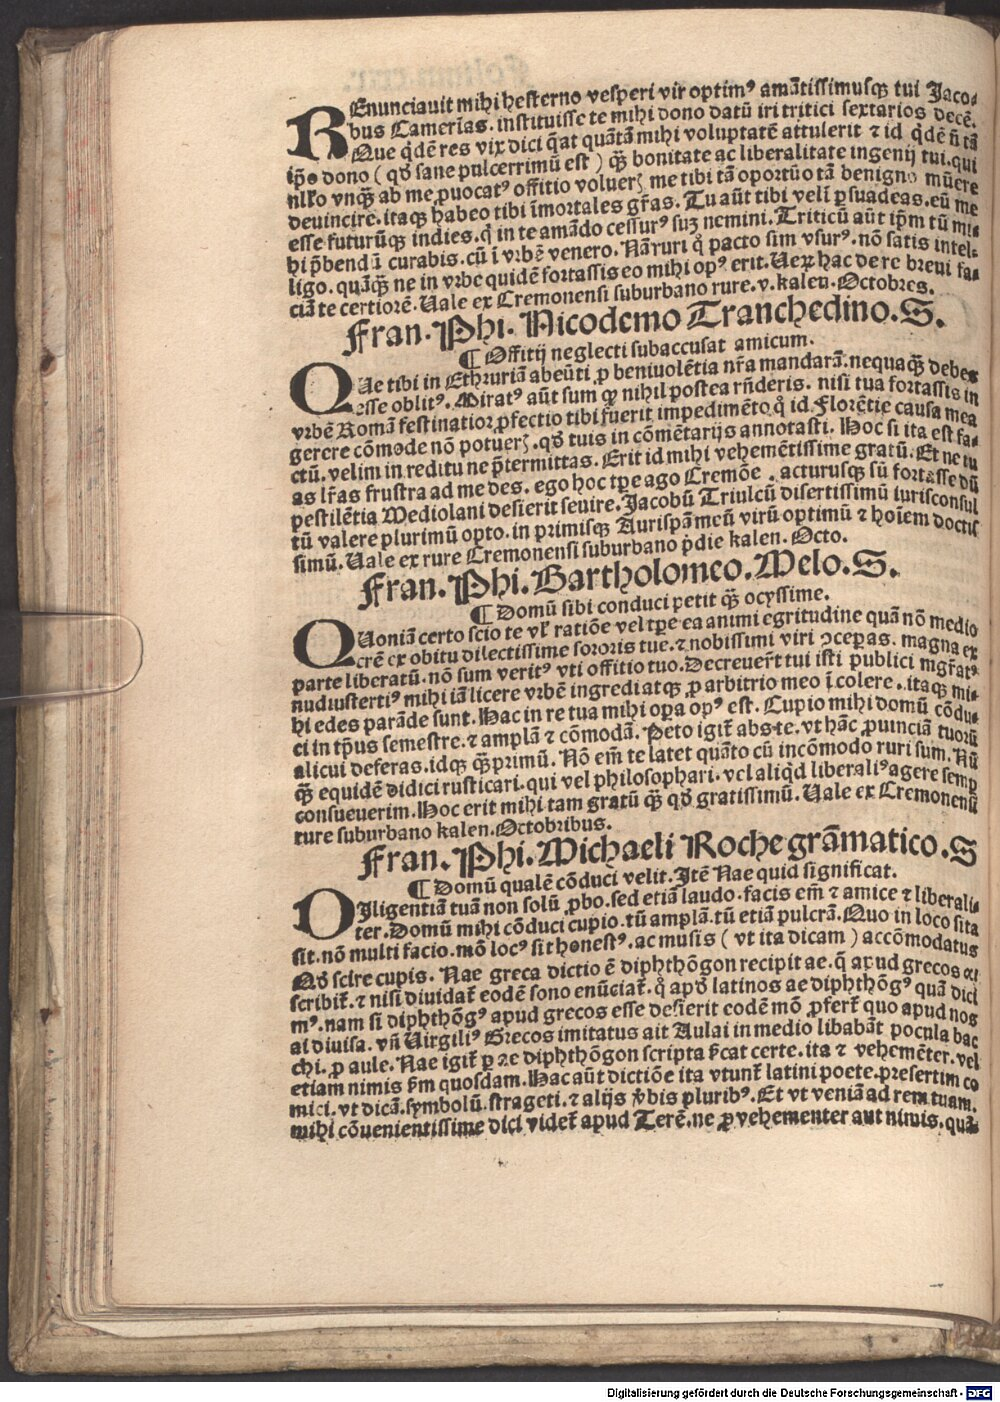 REnunciauit mihi hesterno vesperi vir optimꝰ amãtissimusqꝫ tui Jaco-
bus Camerĩas. instituisse te mihi dono datũ iri tritici sextarios decẽ.
Que q̇dẽ res vix dici q̃at quãtã mihi voluptatẽ attulerit ⁊ id q̇dẽ ñ tã
ip̃o dono ( qđ sane pulcerrimũ est ) qꝫ̃ bonitate ac liberalitate ingenij tui. qui
vnqꝫ̃ ab me ꝓuocatꝰ offitio volueꝝ me tibi tã oportũo tã benigno mũere
deuincire. itaqꝫ habeo tibi ĩmortales gr̃as. Tu aũt tibi velĩ ꝑsuadeas. eũ me
esse futurũqꝫ indies. q̇ in te amãdo cessurꝰ suꝫ nemini. Triticũ aũt ip̃m tũ mi-
hi p̃bendũ curabis. cũ ĩ vrbẽ venero. Nã ruri q̊ pacto sim vsurꝰ. nõ satis intel-
ligo. quãqꝫ̃ ne in vrbe quidẽ fortassis eo mihi opꝰ erit. Ueꝝ hac de re breui fa-
ciã te certiorẽ. Uale ex Cremonensi suburbano rure. v. kalen. Octobres.
Fran. Phi. Nicodemo Tranchedino. S.
¶ Offitij neglecti subaccusat amicum.
QUe tibi in Ethruriã abeũti ꝓ beniuolẽtia nr̃a mandarã. nequaqꝫ̃ debes
esse oblitꝰ. Miratꝰ aũt sum qꝙ nihil postea rñderis. nisi tua fortassis in
vrbẽ Romã festinatior ꝓfectio tibi fuerit impedimẽto q̊ id Florẽtie causa mea
gerere cõmode nõ potueꝝ. qđ tuis in cõmẽtarijs annotasti. Hoc si ita est fa-
ctũ. velim in reditu ne p̃termittas. Erit id mihi vehemẽtissime gratũ. Et ne tu
as lr̃as frustra ad me des. ego hoc tp̃e ago Cremõe. acturusqꝫ sũ fortasse dũ
pestilẽtia Mediolani desierit seuire. Jacobũ Triulcũ disertissimũ iurisconsul
tũ valere plurimũ opto. in primisqꝫ Aurispã meũ virũ optimũ ⁊ hoĩem doctis
simũ. Uale ex rure Cremonensi suburbano p̃die kalen. Octo.
Fran. Phi. Bartholomeo. Melo. S.
¶ Domũ sibi conduci petit qꝫ̃ ocyssime.
QUoniã certo scio te vł ratiõe vel tp̃e ea animi egritudine quã nõ medio
crẽ ex obitu dilectissime sororis tue. ⁊ nobissimi viri ꝯceperas. magna ex
parte liberatũ. nõ sum veritꝰ vti offitio tuo. Decreuer̃t tui isti publici mgr̃atꝰ
nudiustertiꝰ mihi iã licere vrbẽ ingredi atqꝫ ꝓ arbitrio meo ĩcolere. itaqꝫ mi-
hi edes parãde sunt. Hac in re tua mihi oꝑa opꝰ est. Cupio mihi domũ cõdu-
ci in tp̃us semestre. ⁊ amplã ⁊ cõmodã. Peto igit̃ abs te. vt hãc ꝓuinciã tuorũ
alicui deferas. idqꝫ qꝫ̃primũ. Nõ em̃ te latet quãto cũ incõmodo ruri sum. Nũ
qꝫ̃ equidẽ didici rusticari. qui vel philosophari. vel aliq̇d liberaliꝰ agere semꝑ
consueuerim. Hoc erit mihi tam gratũ qꝫ̃ qđ gratissimũ. Uale ex Cremonensi
rure suburbano kalen. Octobribus.
Fran. Phi. Michaeli Roche grãmatico. S
¶ Domũ qualẽ cõduci velit. Itẽ Nae quid significat.
DIligentiã tuã non solũ ꝓbo. sed etiã laudo. facis em̃ ⁊ amice ⁊ liberali-
ter. Domũ mihi cõduci cupio. tũ amplã. tũ etiã pulcrã. Quo in loco sita
sit. nõ multi facio. mõ locꝰ sit honestꝰ. ac musis ( vt ita dicam ) accõmodatus
Qđ scire cupis. Nae greca dictio ẽ diphthõgon recipit ae. q̃ apud grecos ai
scribit̃. ⁊ nisi diuidat̃ eodẽ sono enũciat̃. q̊ apđ latinos ae diphthõgꝰ quã dici
mꝰ. nam si diphthõgꝰ apud grecos esse desierit eodẽ mõ ꝓfert̃ quo apud nos
ai diuisa. vñ Uirgiliꝰ Grecos imitatus ait Aulai in medio libabãt pocula bac
chi. ꝓ aule. Nae igit̃ ꝑ ae diphthõgon scripta p̃cat certe. ita ⁊ vehemẽter. vel
etiam nimis p̃m quosdam. Hac aũt dictiõe ita vtunt̃ latini poete. presertim co
mici. vt dicã. symbolũ. strageti. ⁊ alijs ṽbis pluribꝰ. Et vt veniã ad rem tuam.
mihi cõuenientissime dici videt̃ apud Terẽ. ne ꝓ vehementer aut nimis. quã-